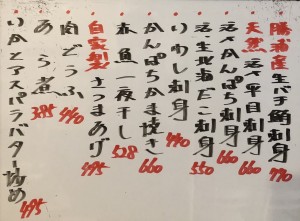 勝浦産生バチ鮪刺身 770
天然活〆平目刺身 660
活〆かんぱち刺身 660
活・生北海だこ刺身 550
いわし刺身 440
かんぱちかま焼き 660
赤魚一夜干し 528
自家製さつまあげ 495
肉どうふ 440
あら煮 385
いかとアスパラバター炒め 495